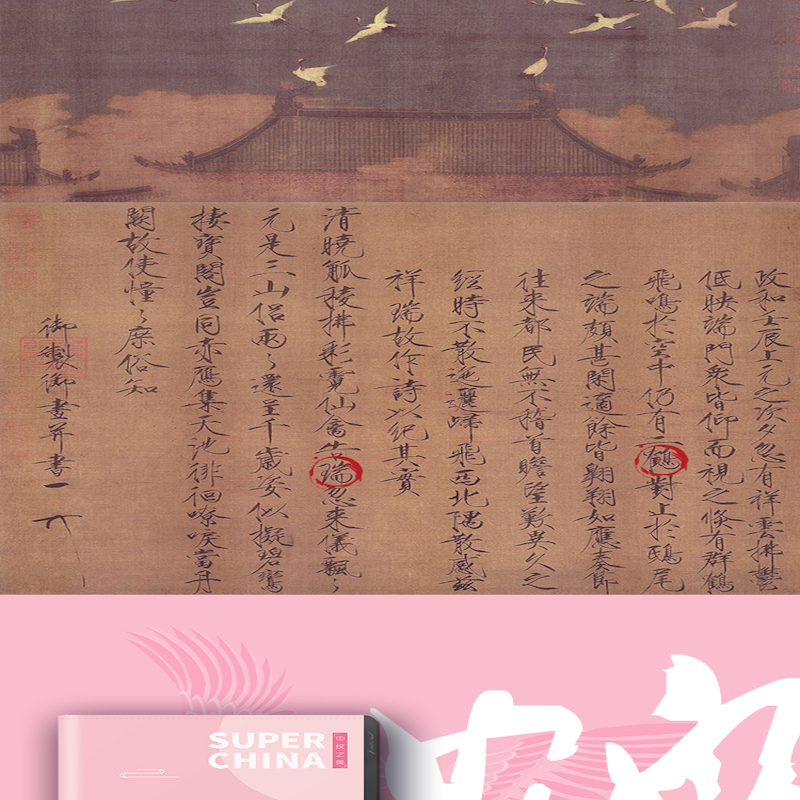 政和壬辰上元之次夕忽有祥雲拂鬱
低映端門衆皆仰而視之倏有群鶴
飛鳴於空中仍有二鶴對止於鴟尾
之端頗甚閑適餘皆翱翔如應奏節
往來都民無不稽首瞻望歎異久之
經時不散迤邐歸飛西北隅散感茲
祥瑞故作詩以紀其實
清曉觚稜拂彩霓仙禽告瑞忽來儀飄〻
元是三山侶兩〻還呈千歲姿似擬碧鸞
棲寶閣豈同赤鴈集天池徘徊嘹唳當丹
闕故使憧〻庶俗知
御製御畫并書
SUPER
CHINA